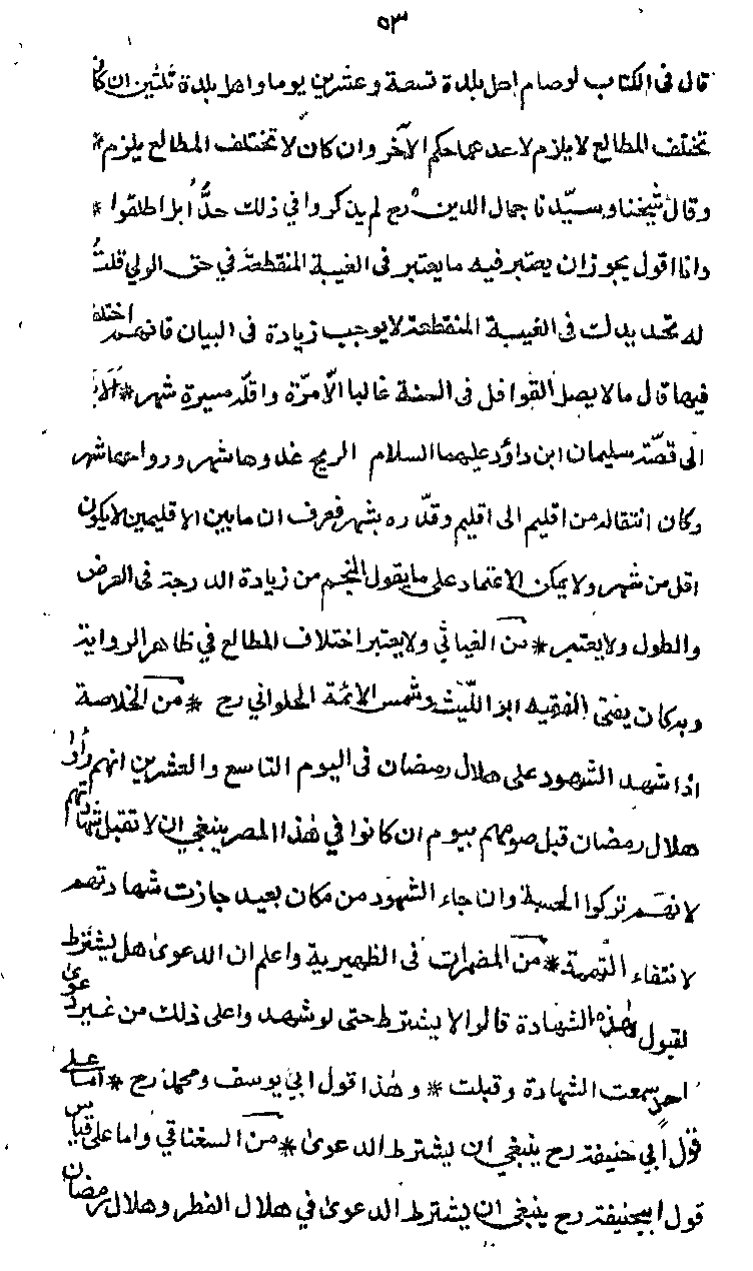 ٥٣
قال فى الكتاب لوصام اهل بلدة تسعة وعشرين يوما واهل بلدة ثلثين ان كان
تختلف المطالع لا يلزم لاحدهما حكم الآخر وان كان لا تختلف المطالع يلزم *
وقال شيخنا وسيّدنا جمال الدين رح لم يذكروا في ذلك حدًّا بل اطلقوا *
وانا اقول يجوز ان يعتبر فيه ما يعتبر فى الغيبة المنقطعة في حق الولي قلتُ
له تحديدك فى الغيبة المنقطعة لا يوجب زيادة فى البيان فانهم اختلفوا
فيها قال ما لا يصل القوافل فى السنة غالبا الّا مرّة واقلّه مسيرة شهر *
الى قصّة سليمان ابن داؤد عليهما السلام الريح غدوها شهر ورواحها شهر
وكان انتقاله من اقليم الى اقليم وقدّره بشهر فعرف ان ما بين الاقليمين لا يكون
اقل من شهر ولا يمكن الاعتماد على ما يقول المنجم من زيادة الدرجة فى العرض
والطول ولا يعتبر * من الغياثي ولا يعتبر اختلاف المطالع في ظاهر الرواية
وبه كان يفتى الفقيه ابو اللّيث وشمس الائمّة الحلواني رح * من الخلاصة
اذا شهد الشهود على هلال رمضان فى اليوم التاسع والعشرين انهم رأوا
هلال رمضان قبل صومهم بيوم ان كانوا في هٰذا المصر ينبغي ان لا تقبل شهادتهم
لانهم تركوا الحسبة وان جاء الشهود من مكان بعيد جازت شهادتهم
لانتفاء التهمة * من المضمرات فى الظهيرية واعلم ان الدعوىٰ هل يشترط
لقبول هٰذه الشهادة قالوا لا يشترط حتى لو شهدوا على ذلك من غير دعوىٰ
احدٍ سمعت الشهادة وقبلت * وهٰذا قول ابي يوسف ومحمد رح * اما على
قول ابي حنيفة رح ينبغي ان يشترط الدعوىٰ * من السغناقي واما على قياس
قول ابيحنيفة رح ينبغي ان يشترط الدعوىٰ في هلال الفطر وهلال رمضان